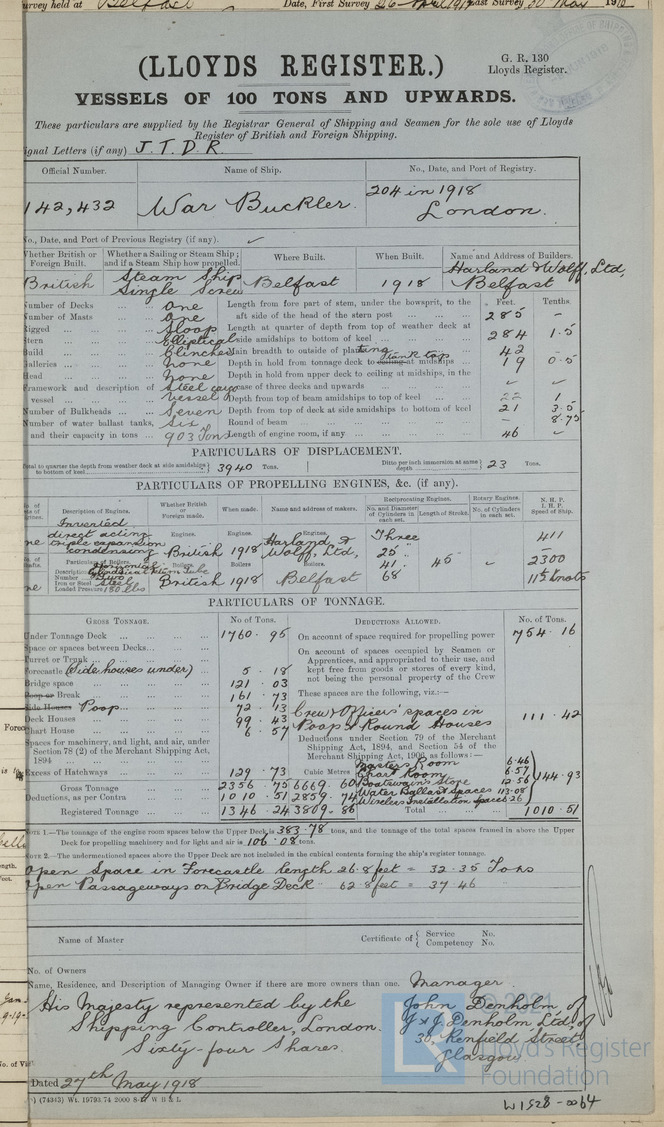 urvey held at Belfast Date, First Survey 26 April 1917 Last Survey 30 May 1918
(LLOYDS REGISTER.)
G. R. 130
Lloyds Register.
VESSELS OF 100 TONS AND UPWARDS.
These particulars are supplied by the Registrar General of Shipping and Seamen for the sole use of Lloyds
Register of British and Foreign Shipping.
ignal Letters (if any) J.T.D.R.
Official Number. Name of Ship. No., Date, and Port of Registry.
142,432 War Buckler. 204 in 1918
London.
No., Date, and Port of Previous Registry (if any).
Whether British or Foreign Built. Whether a Sailing or Steam Ship; and if a Steam Ship how propelled. Where Built. When Built. Name and Address of Builders.
British Steam Ship Single Screw Belfast 1918 Harland & Wolff, Ltd, Belfast
Feet. Tenths.
Number of Decks ... One Length from fore part of stem, under the bowsprit, to the
Number of Masts ... One aft side of the head of the stern post ... 285 -
Rigged ... Sloop Length at quarter of depth from top of weather deck at
Stern ... Elliptical side amidships to bottom of keel ... 284 1.5
Build ... Clincher Main breadth to outside of plating 42 -
Galleries ... None Depth in hold from tonnage deck to ceiling tank top at midships ... 19 0.5
Head ... None Depth in hold from upper deck to ceiling at midships, in the
Framework and description of vessel ... Steel cargo vessel case of three decks and upwards
Depth from top of beam amidships to top of keel ... 22 1
Number of Bulkheads ... Seven Depth from top of deck at side amidships to bottom of keel 21 3.5
Number of water ballast tanks, Six Round of beam ... - 8.75
and their capacity in tons ... 903 Tons Length of engine room, if any ... 46
PARTICULARS OF DISPLACEMENT.
Total to quarter the depth from weather deck at side amidships to bottom of keel 3940 Tons. Ditto per inch immersion at same depth 23 Tons.
PARTICULARS OF PROPELLING ENGINES, &c. (if any).
Description of Engines. Whether British or Foreign made. When made. Name and address of makers. Reciprocating Engines. Rotary Engines. N. H. P. I. H. P. Speed of Ship.
No. and Diameter of Cylinders in each set. Length of Stroke. No. of Cylinders in each set.
Inverted direct acting triple expansion condensing Engines. British Engines. 1918 Engines. Harland & Wolff, Ltd, Three 25 41 68 45 411
Particulars of Boilers. Boilers. British Boilers 1918 Boilers. Belfast 2300
Number Two
Iron or Steel Steel
Loaded Pressure 180 lbs 11½ Knots
PARTICULARS OF TONNAGE.
GROSS TONNAGE. No. of Tons. DEDUCTIONS ALLOWED. No. of Tons.
Under Tonnage Deck ... 1760.95 On account of space required for propelling power 754.16
Space or spaces between Decks ... On account of spaces occupied by Seamen or
Turret or Trunk ... Apprentices, and appropriated to their use, and
Forecastle (Side houses under) 5.18 kept free from goods or stores of every kind,
Bridge space ... 121.03 not being the personal property of the Crew
Poop or Break ... 161.73 These spaces are the following, viz.:—
Side Houses Poop ... 72.13 Crew & Officers' spaces in
Deck Houses ... 99.43 Poop & Round Houses 111.42
Chart House ... 6.57 Deductions under Section 79 of the Merchant
Spaces for machinery, and light, and air, under Shipping Act, 1894, and Section 54 of the
Section 78 (2) of the Merchant Shipping Act, 1894 Merchant Shipping Act, 1906, as follows:—
Master's Room 6.46
Chart Room 6.57
Excess of Hatchways ... 129.73 Cubic Metres Boatswain's Store 12.56 144.93
Gross Tonnage 2356.75 6669.60 Water Ballast spaces 113.08
Deductions, as per Contra 1010.51 2859.74 Wireless Installation space 6.26
Registered Tonnage 1346.24 3809.86 Total ... 1010.51
NOTE 1.—The tonnage of the engine room spaces below the Upper Deck is 383.78 tons, and the tonnage of the total spaces framed in above the Upper
Deck for propelling machinery and for light and air is 106.08 tons.
NOTE 2.—The undermentioned spaces above the Upper Deck are not included in the cubical contents forming the ship's register tonnage.
Open Space in Forecastle length 26.8 feet = 32.35 Tons
Open Passageways on Bridge Deck 62.8 feet = 37.46
Name of Master Certificate of Service No.
Competency No.
No. of Owners
Name, Residence, and Description of Managing Owner if there are more owners than one. Manager
His Majesty represented by the John Denholm of
Shipping Controller, London. J & J Denholm Ltd, of
Sixty-four Shares. 30, Renfield Street,
Glasgow
Dated 27th May 1918
(74343) Wt. 19793.74 2000 S-
© 2021
Lloyd's Register
Foundation
W1528-0064